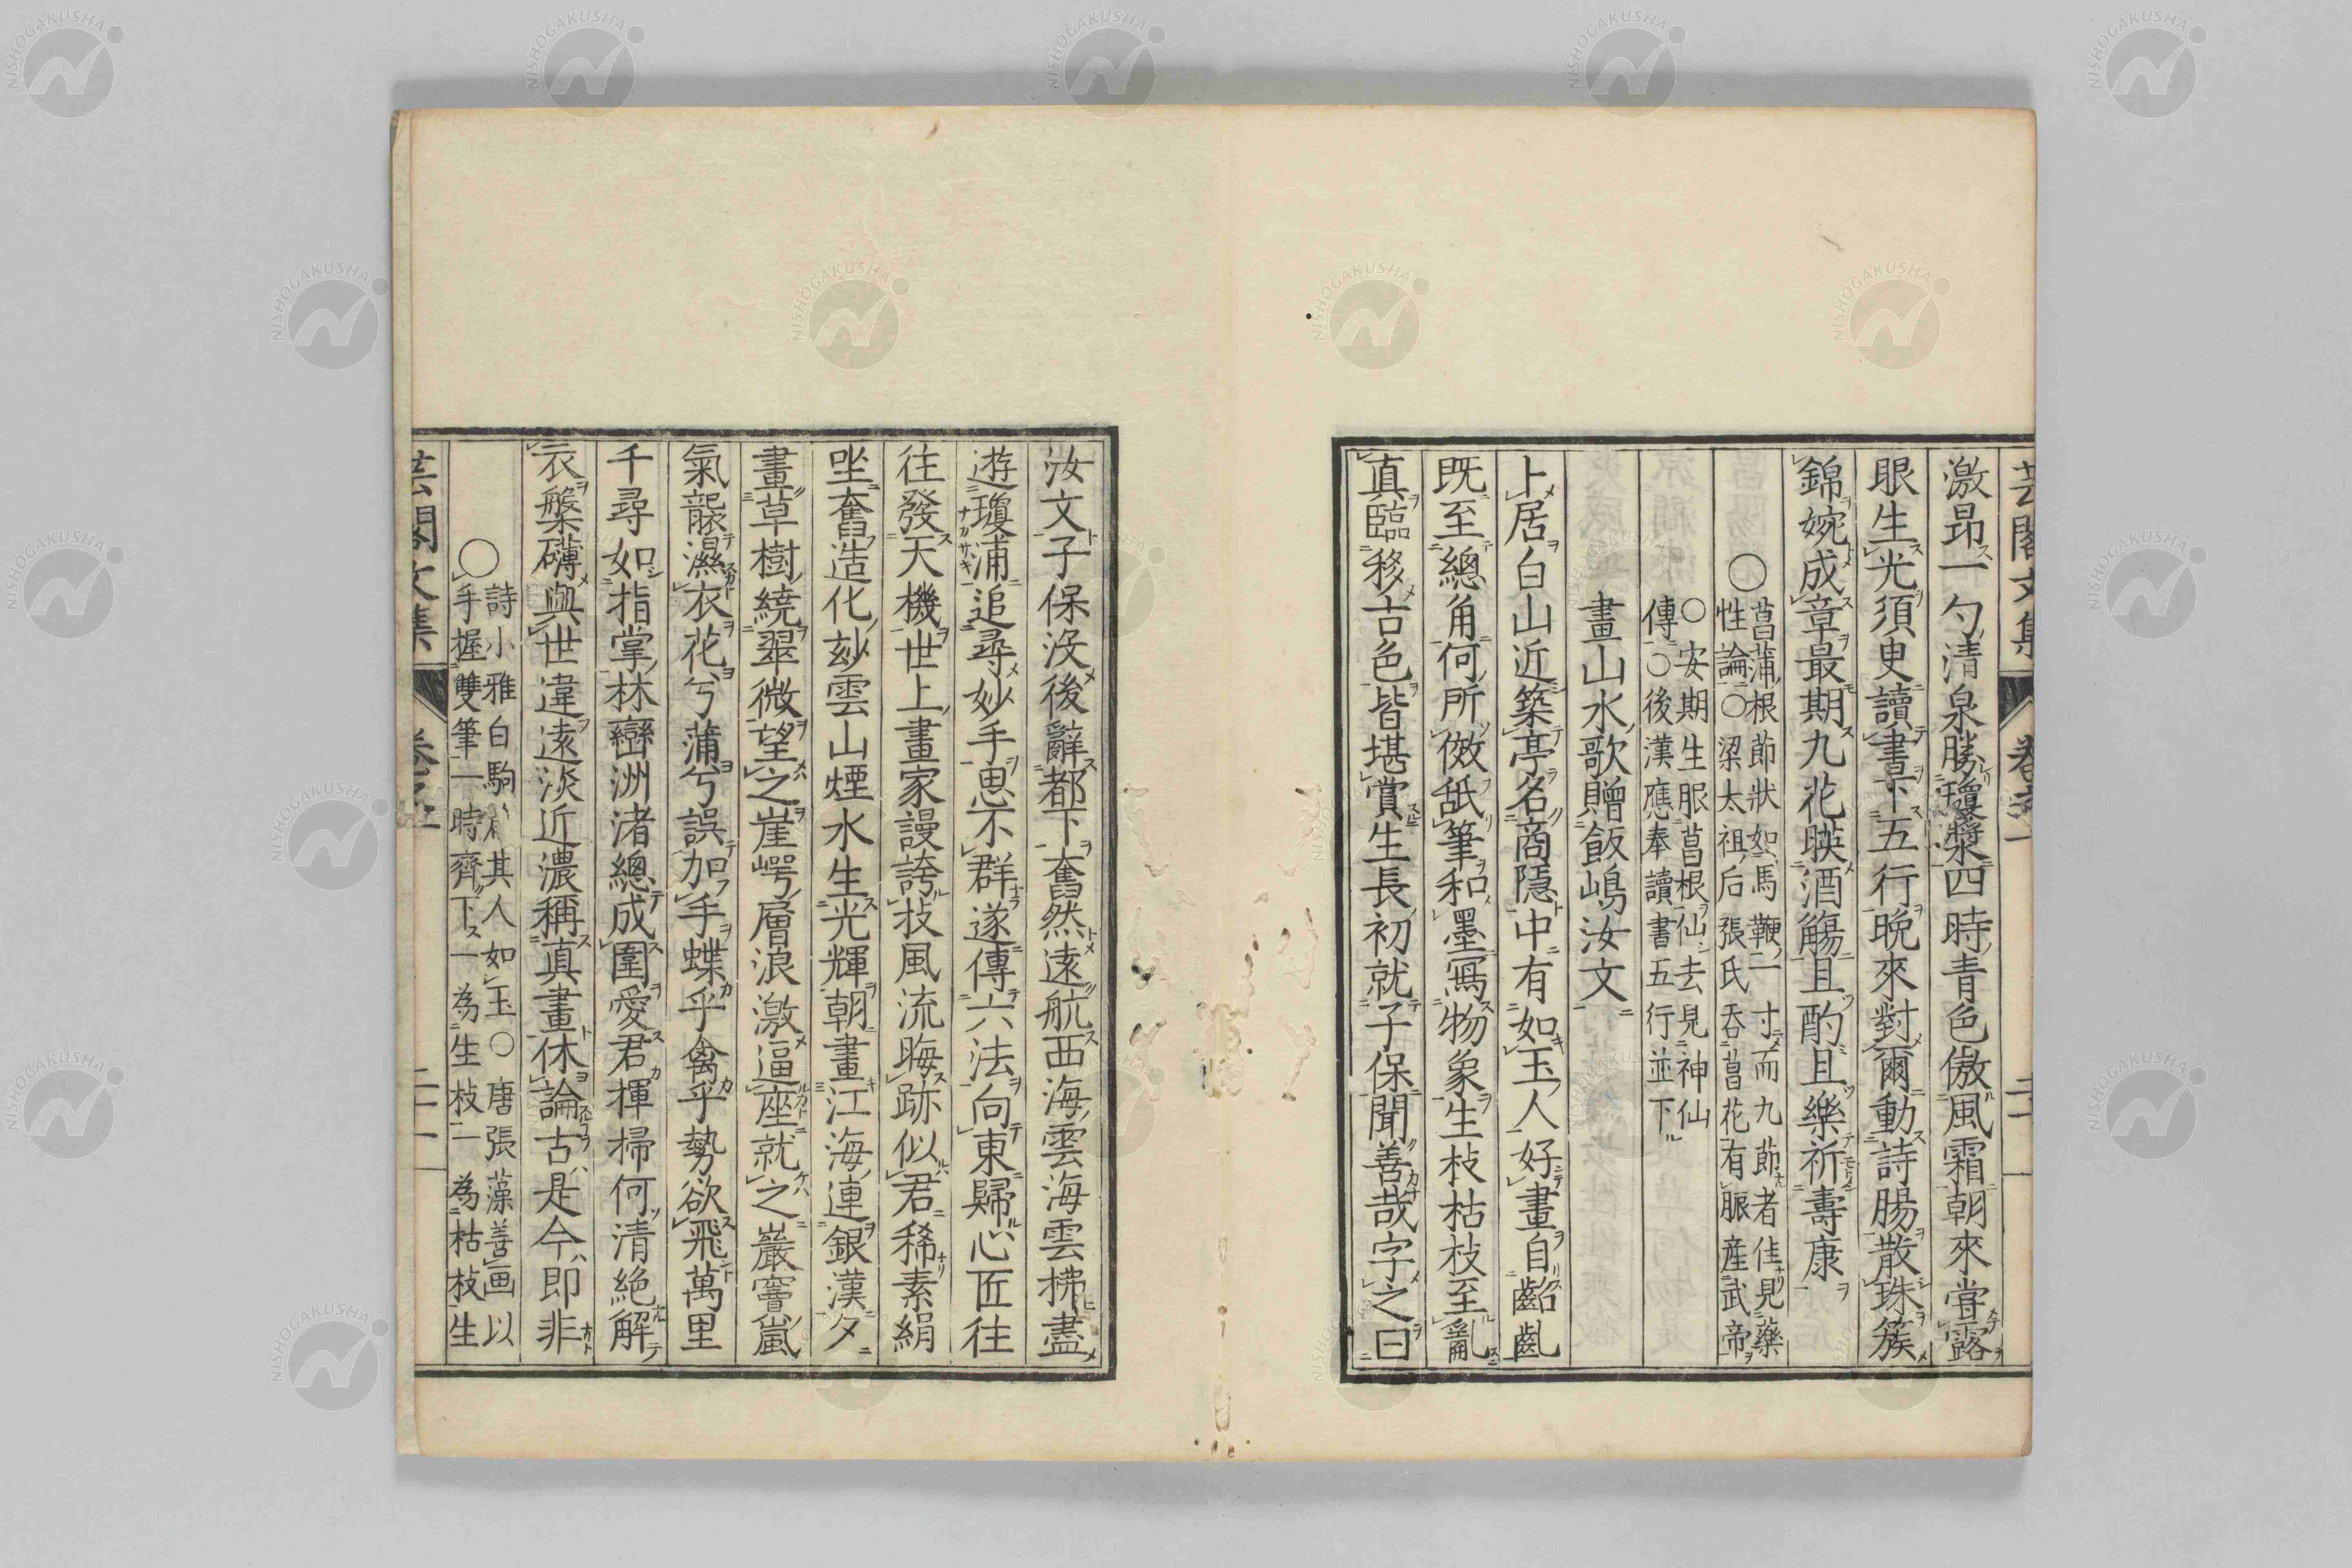 激昂一勺清泉勝瓊漿四時青色傲風霜朝來嘗露
眼生光須臾讀書下五行晩來對爾動詩腸散珠簇
錦婉成章最期九花暎酒觴且酌且樂祈壽康
〇菖蒲根節狀如馬鞭一寸而九節者佳見藥
性論〇梁太祖后張氏吞菖花有脤産武帝
〇安期生服菖根仙去見神仙
傳〇後漢應奉讀書五行並下
畫山水歌贈飯嶋汝文
卜居白山近築亭名商隱中有如玉人好畫自齠齓
既至總角何所倣舐筆和墨寫物象生枝枯枝至亂
真臨移古色皆堪賞生長初就子保聞善哉字之曰
汝文子保沒後辭都下奮然遠航西海雲海雲拂盡
遊瓊浦追尋妙手思不群遂傳六法向東歸心匠往
ナガサキ
往發天機世上畫家謾誇技風流晦跡似君稀素絹
坐奮造化玅雲山煙水生光輝朝畫江海連銀漢夕
畫草樹繞翠微望之崖崿層浪激逼座就之巖竇嵐
氣襲濕衣花兮蒲兮誤加手蝶乎禽乎勢欲飛萬里
千尋如指掌林巒洲渚總成圍愛君揮掃何清絶解
衣槃礴與世違遠淡近濃稱真畫休論古是今即非
〇詩小雅白駒其人如玉〇唐張藻善画以
手握雙筆一時齊下一為生枝一為枯枝生
芸閣文集